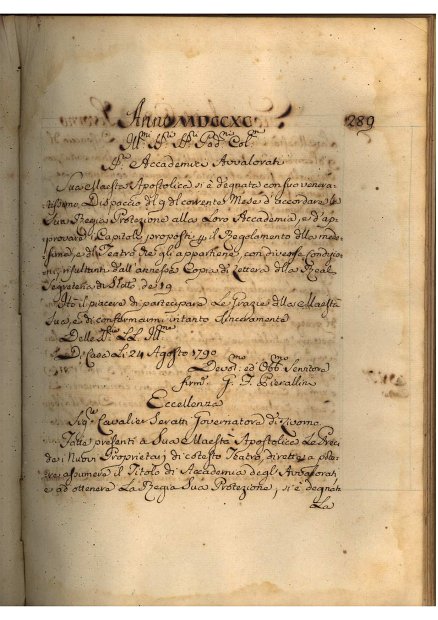 Anno MDCCXC. 289
Ill.mi Sig.ri Sig.ri Pad.ni Col.mi
Sig.ri Accademici Avvalorati
Sua Maestà Apostolica si è degnata con suo venera-
tissimo Dispaccio di 9 di corrente Mese d'accordare la
Sua Regia Protezione alla Loro Accademia, e d'ap-
provare i Capitoli proposti p. il Regolamento della mede-
sima, e del Teatro che gli appartiene, con diverse Condizio-
ni, risultanti dall'annessa Copia di Lettera della Real
Segreteria di Stato de 19
Hò il piacere di partecipare Le Grazie della Maestà
Sua, e di confermarmi intanto sinceramente
Delle Sig.rie LL. Ill.me
Di Casa Li 24 Agosto 1790
Devot. ed Obb.mo Servitore
firm. G. F. Pierallini
Eccellenza
Sig.re Cavalier Seratti Governatore di Livorno
Fatte presenti a Sua Maestà Apostolica Le Preci
de i Nuovi Proprietarj di cotesto Teatro dirette a pote-
re assumere il Titolo di Accademia degl'Avvalorati,
e ad ottenere La Regia Sua Protezione, si è degnata
La